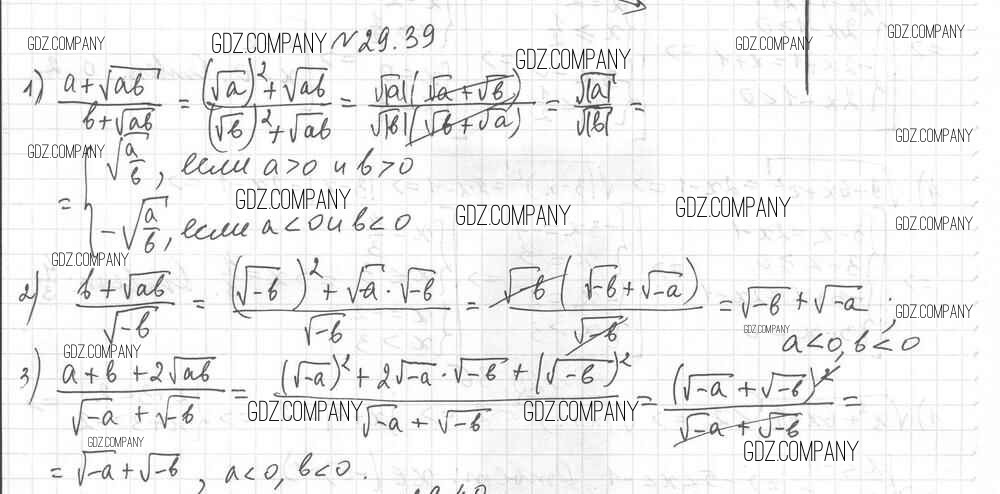 GDZ.COMPANY GDZ.COMPANY №29.39 GDZ.COMPANY GDZ.COMPANY
GDZ.COMPANY
1) (a+√ab)/(b+√ab) = ((√a)²+√ab)/((√b)²+√ab) = (√|a|(√a+√b))/(√|b|(√b+√a)) = √|a|/√|b| =
GDZ.COMPANY
GDZ.COMPANY
= { √(a/b), если a>0 и b>0
GDZ.COMPANY GDZ.COMPANY GDZ.COMPANY
-√(a/b), если a<0 и b<0
GDZ.COMPANY
GDZ.COMPANY
2) (b+√ab)/√-b = ((√-b)²+√-a·√-b)/√-b = (√-b(√-b+√-a))/√-b = √-b+√-a;
GDZ.COMPANY
GDZ.COMPANY
a<0, b<0
GDZ.COMPANY
3) (a+b+2√ab)/(√-a+√-b) = ((√-a)²+2√-a·√-b+(√-b)²)/(√-a+√-b) = (√-a+√-b)²/(√-a+√-b) =
GDZ.COMPANY GDZ.COMPANY
GDZ.COMPANY GDZ.COMPANY
= √-a+√-b, a<0, b<0.